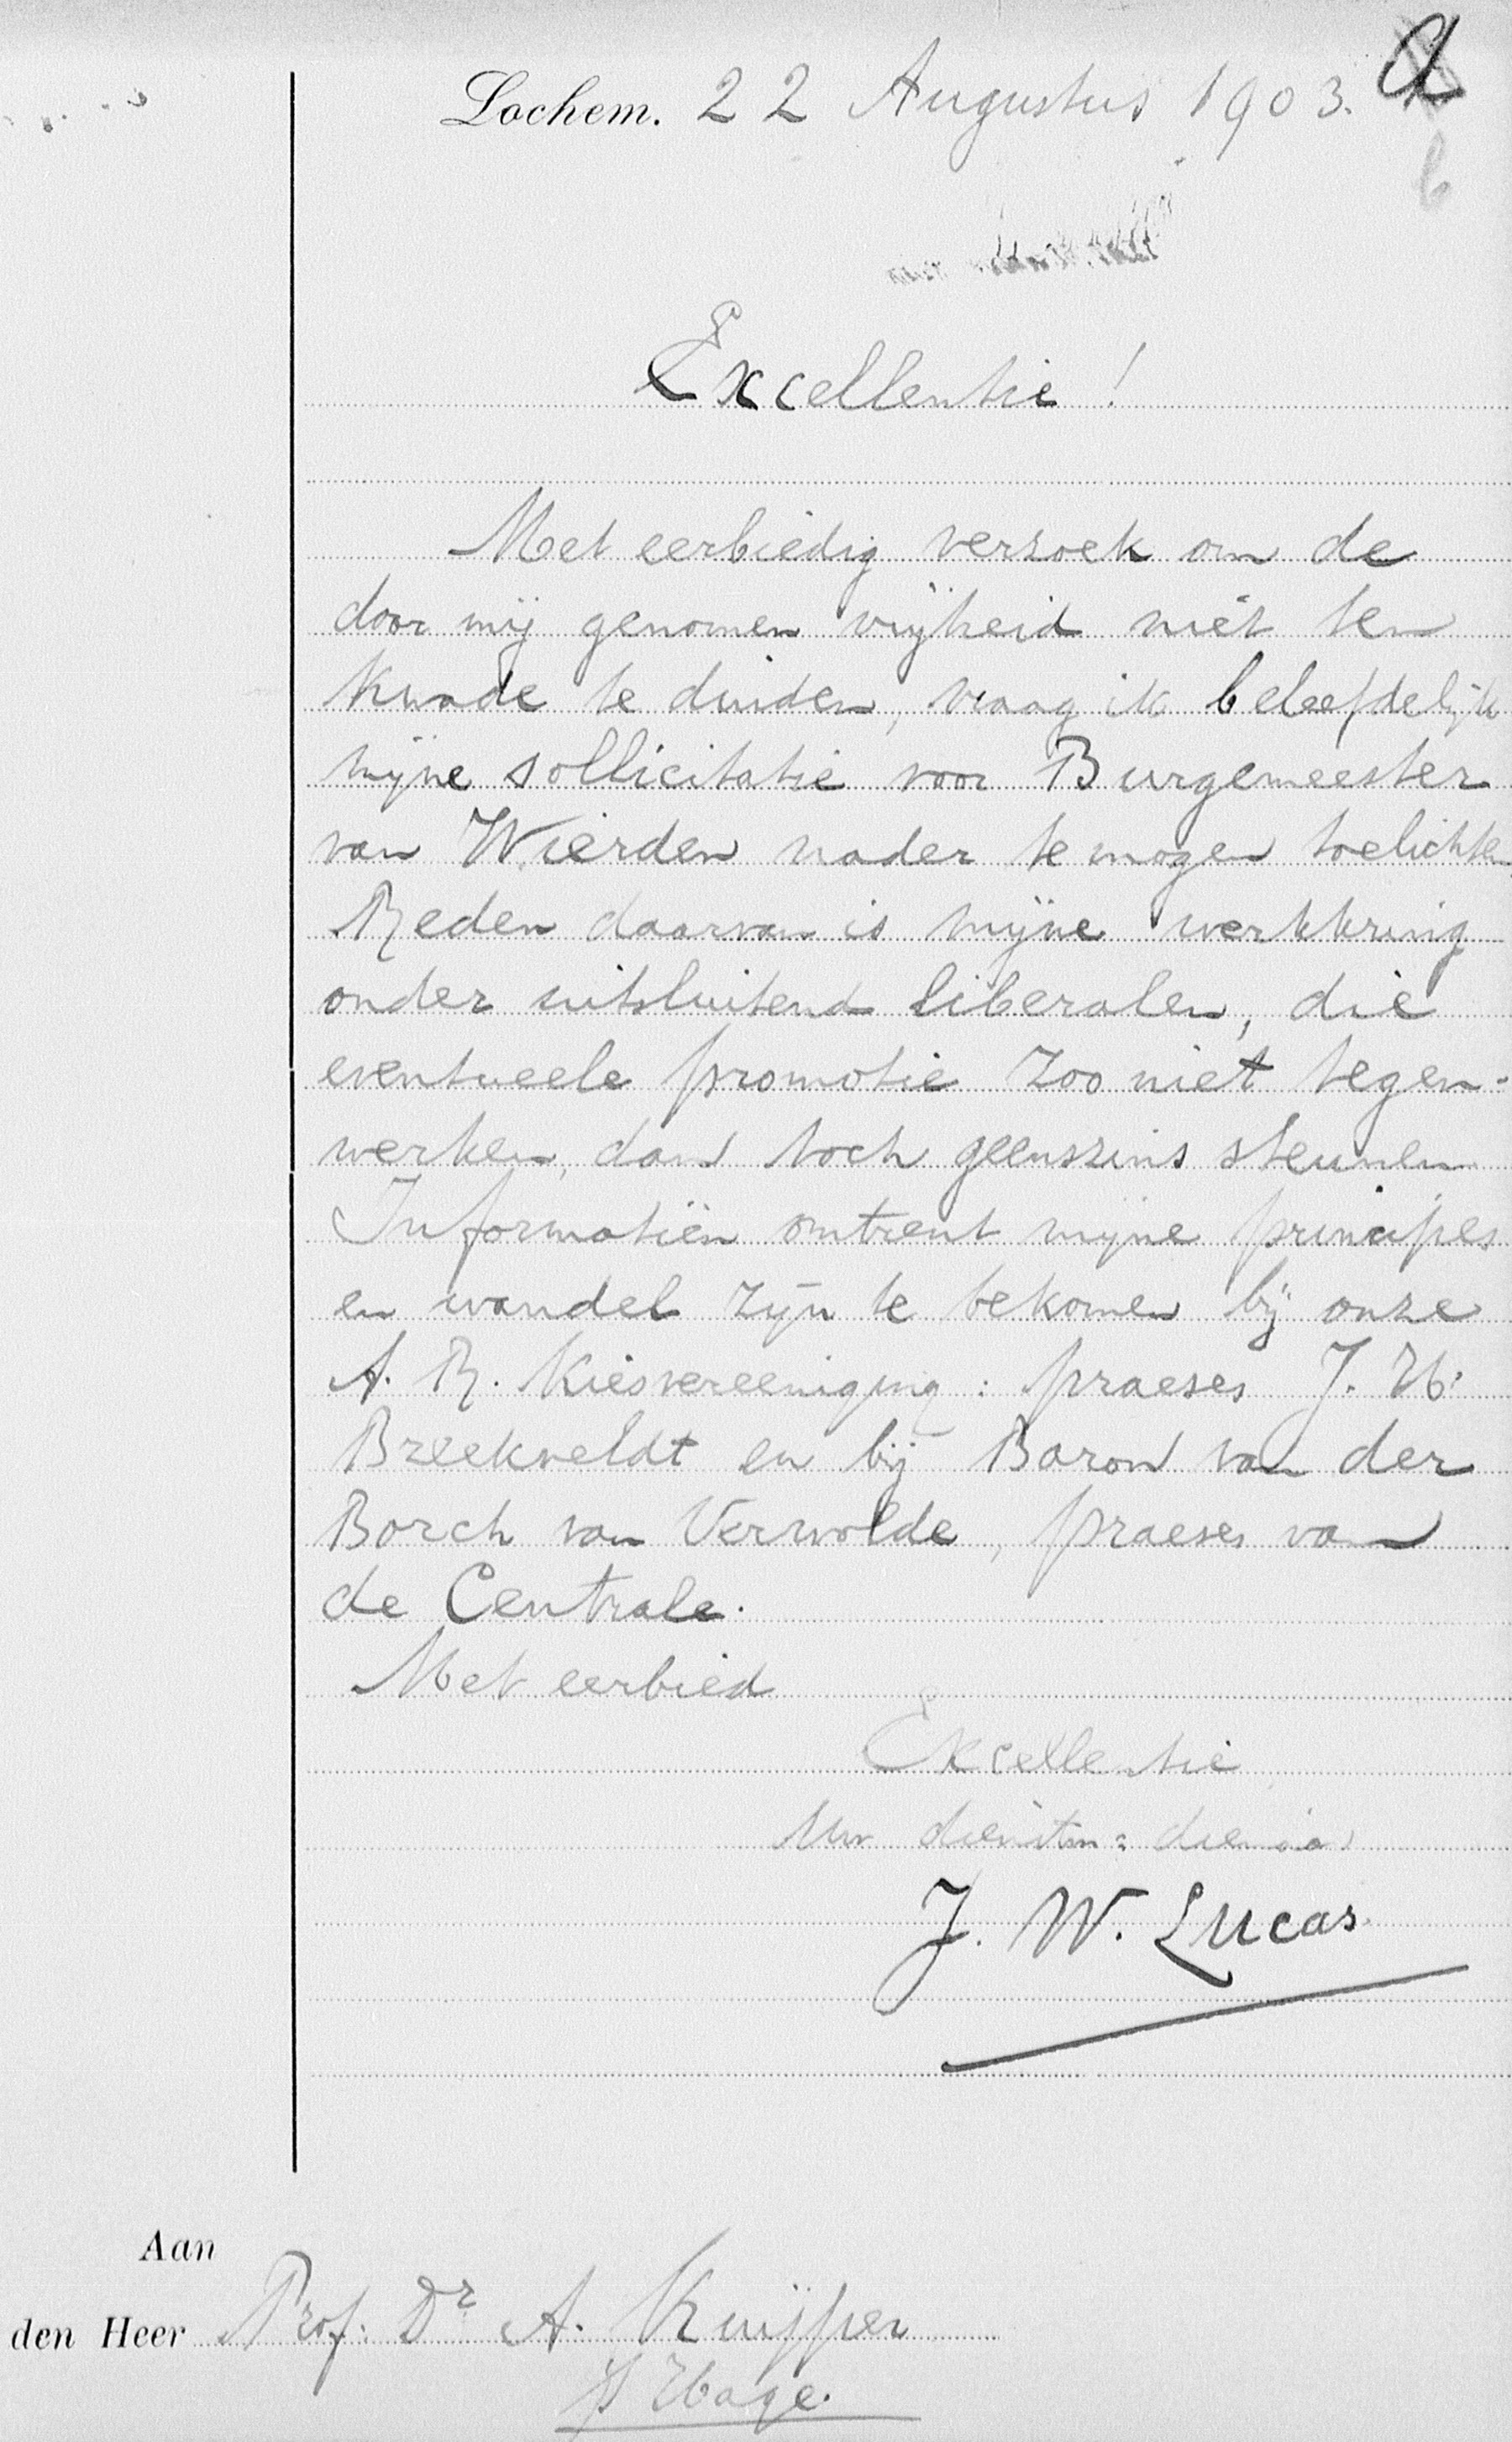 Lochem. 22 Augustus 1903. a
b
Excellentie!
Met eerbiedig verzoek om de
door mij genomen vrijheid niet ten
kwade te duiden, vraag ik beleefdelijk
mijne sollicitatie voor Burgemeester
van Wierden nader te mogen toelichten.
Reden daarvan is mijne werkkring
onder uitsluitend liberalen, die
eventueele promotie zoo niet tegen-
werken, dan toch geenszins steunen
Informatiën omtrent mijne principes
en wandel zijn te bekomen bij onze
A. R. Kiesvereeniging: praeses J. H.
Breekveldt en bij Baron van der
Borch van Verwolde, praeses van
de Centrale.
Met eerbied
Excellentie
Uw dienstw: dienaar
J. W. Lucas.
Aan
den Heer Prof: Dr A. Kuijper
's Hage.